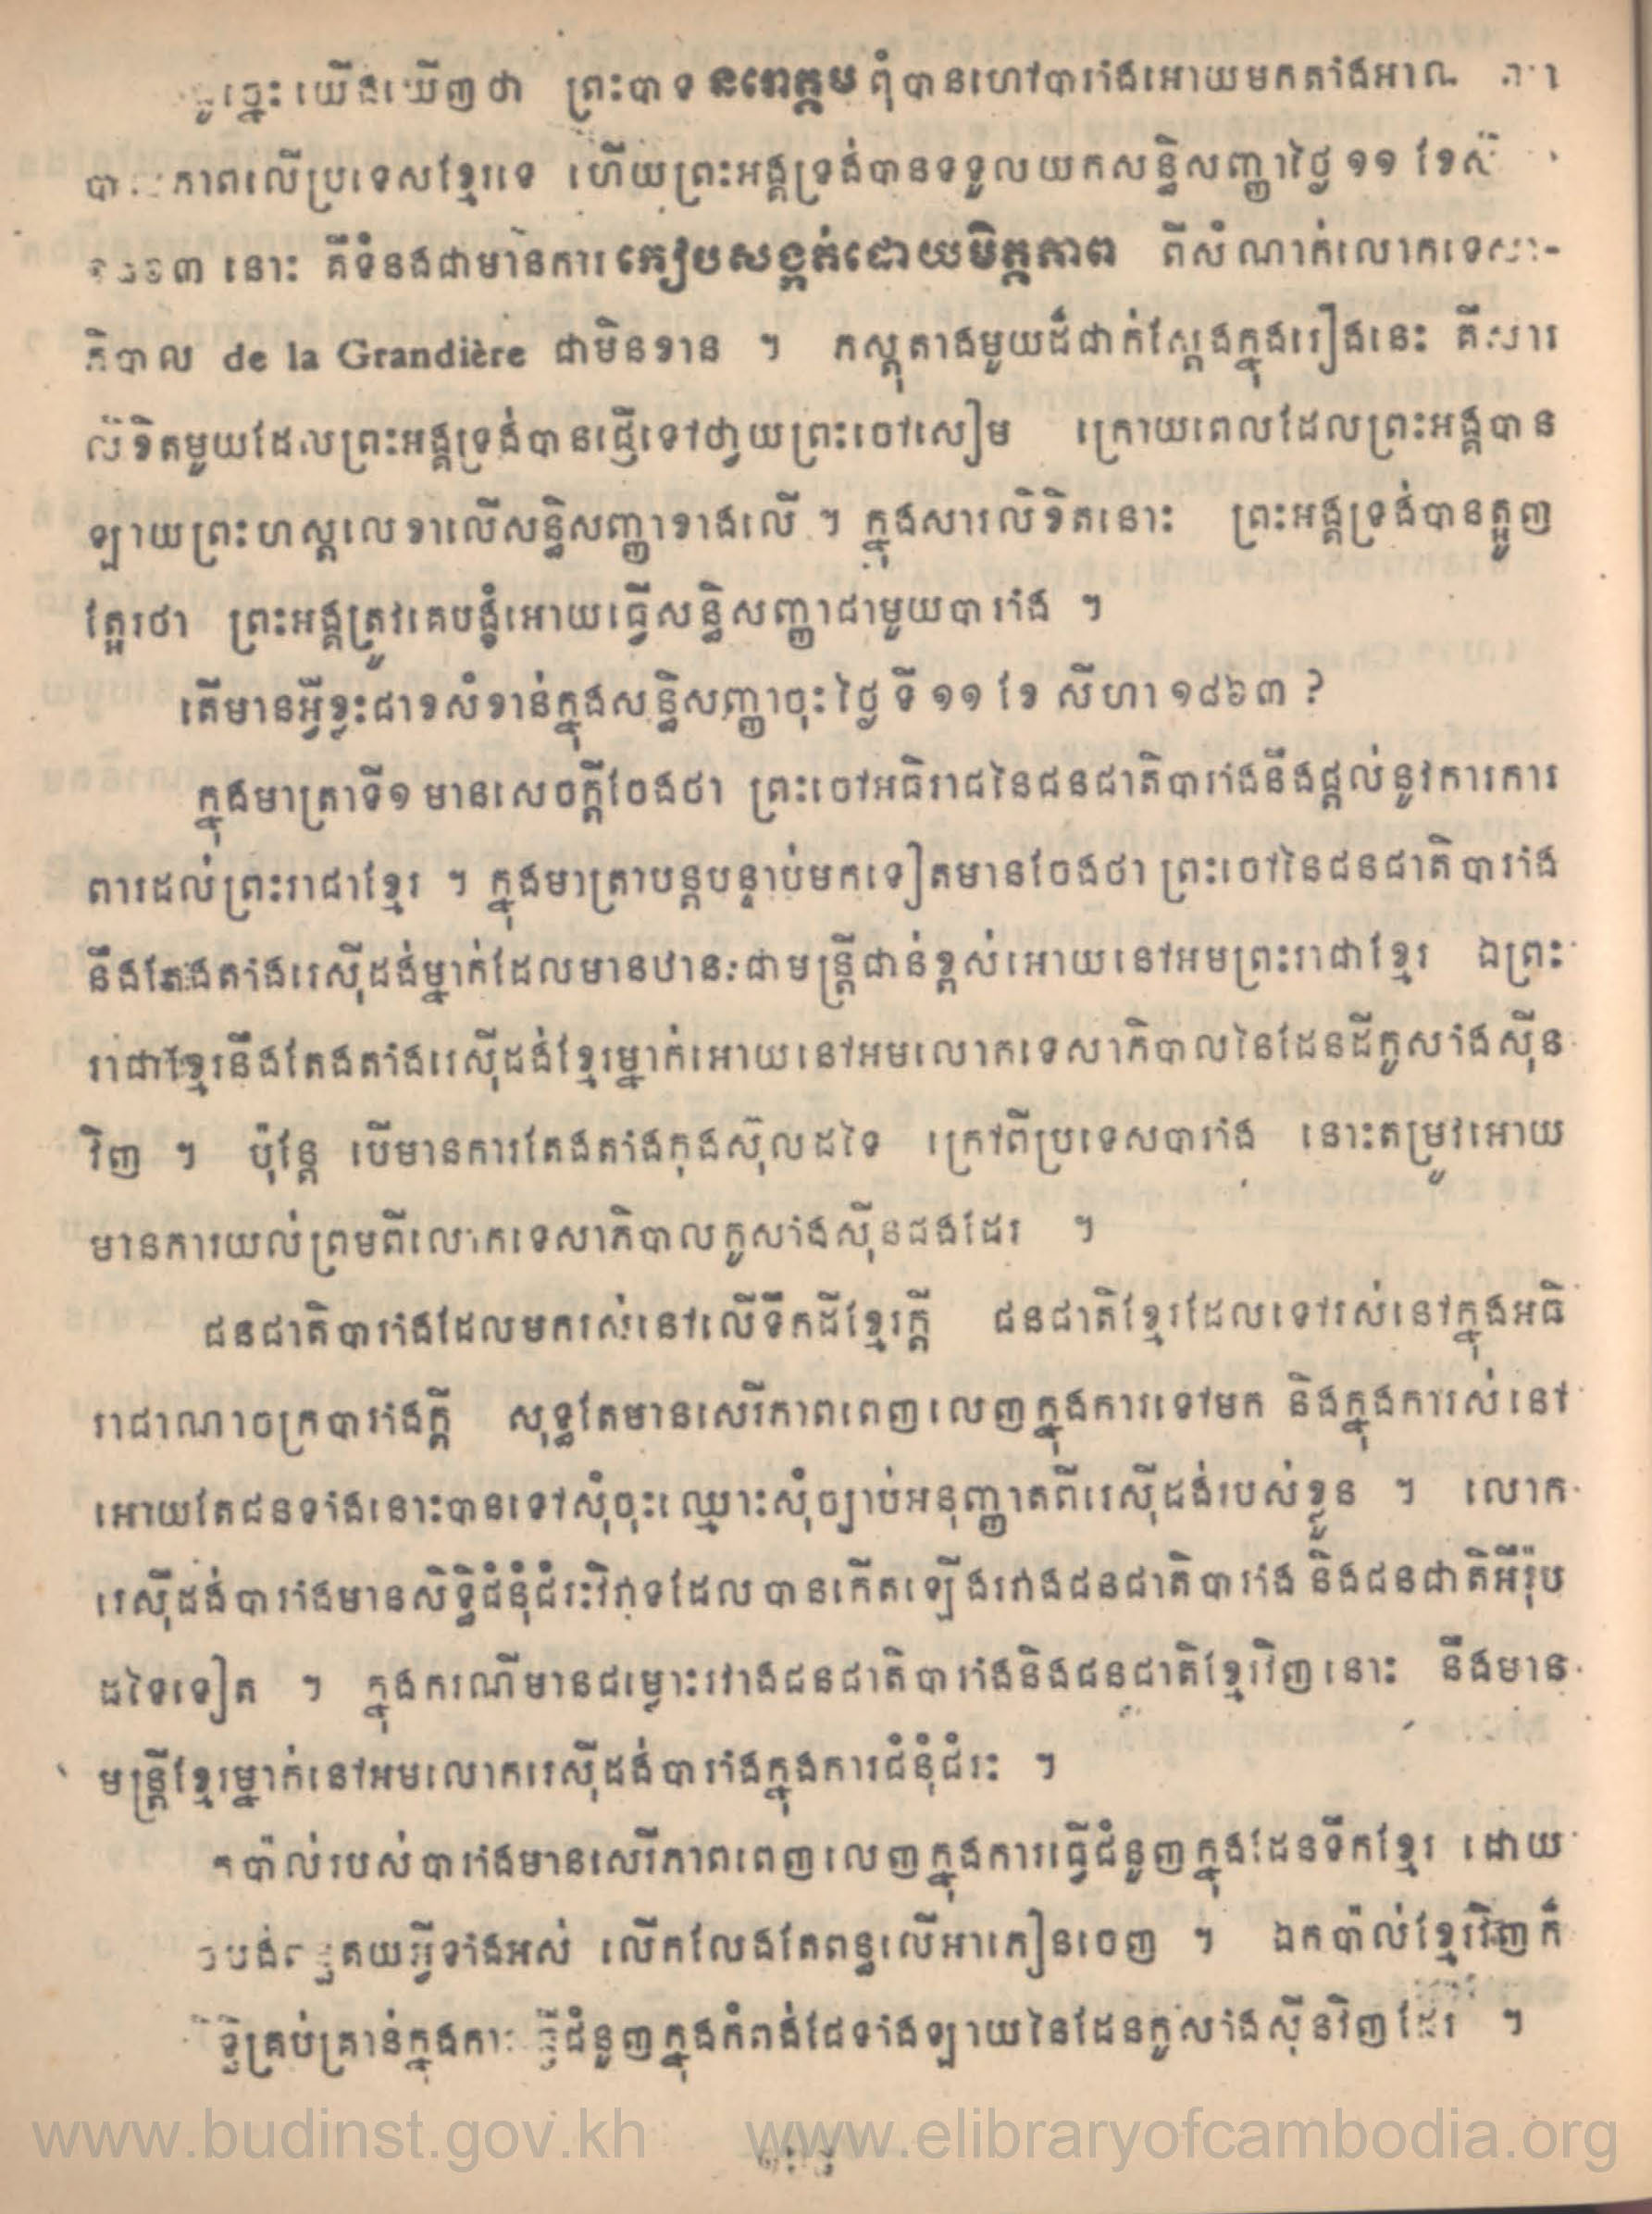 យើងឃើញថា ព្រះបាទនរោត្តមពុំបានហៅបារាំងអោយមកតាំង
ភាពលើប្រទេសខ្មែរទេ ហើយព្រះអង្គទ្រង់បានទទួលយកសន្ធិសញ្ញាថ្ងៃ ១១ ខែ
នោះ គឺទំនងជាមានការគៀបសង្កត់ដោយមិត្តភាព ពីសំណាក់លោកទេសា-
ភិបាល de la Grandière ជាមិនខាន ។ ភស្តុតាងមួយដ៏ជាក់ស្តែងក្នុងរឿងនេះ គឺសារ
លិខិតមួយដែលព្រះអង្គទ្រង់បានផ្ញើទៅថ្វាយព្រះចៅសៀម ក្រោយពេលដែលព្រះអង្គបាន
ឡាយព្រះហស្តលេខាលើសន្ធិសញ្ញាខាងលើ ។ ក្នុងសារលិខិតនោះ ព្រះអង្គទ្រង់បានត្អូញ
ត្អែរថា ព្រះអង្គត្រូវគេបង្ខំអោយធ្វើសន្ធិសញ្ញាជាមួយបារាំង ។
តើមានអ្វីខ្លះជាខសំខាន់ក្នុងសន្ធិសញ្ញាចុះថ្ងៃ ទី ១១ ខែ សីហា ១៨៦៣ ?
ក្នុងមាត្រាទី១ មានសេចក្តីចែងថា ព្រះចៅអធិរាជនៃជនជាតិបារាំងនឹងផ្តល់នូវការការ
ពារដល់ព្រះរាជាខ្មែរ ។ ក្នុងមាត្រាបន្តបន្ទាប់មកទៀតមានចែងថា ព្រះចៅនៃជនជាតិបារាំង
នឹងតែងតាំងរេស៊ីដង់ម្នាក់ដែលមានឋានៈជាមន្ត្រីជាន់ខ្ពស់អោយនៅអមព្រះរាជាខ្មែរ ឯព្រះ
រាជាខ្មែរនឹងតែងតាំងរេស៊ីដង់ខ្មែរម្នាក់អោយនៅអមលោកទេសាភិបាលនៃដែនដីកូសាំងស៊ីន
វិញ ។ ប៉ុន្តែ បើមានការតែងតាំងកុងស៊ុលដទៃ ក្រៅពីប្រទេសបារាំង នោះតម្រូវអោយ
មានការយល់ព្រមពីលោកទេសាភិបាលកូសាំងស៊ីនផងដែរ ។
ជនជាតិបារាំងដែលមករស់នៅលើទឹកដីខ្មែរក្តី ជនជាតិខ្មែរដែលទៅរស់នៅក្នុងអធិ
រាជាណាចក្របារាំងក្តី សុទ្ធតែមានសេរីភាពពេញលេញក្នុងការទៅមក និងក្នុងការរស់នៅ
អោយតែជនទាំងនោះបានទៅសុំចុះឈ្មោះសុំច្បាប់អនុញ្ញាតពីរេស៊ីដង់របស់ខ្លួន ។ លោក
រេស៊ីដង់បារាំងមានសិទ្ធិជំនុំជំរះវិវាទដែលបានកើតឡើងរវាងជនជាតិបារាំង និងជនជាតិអឺរ៉ុប
ដទៃទៀត ។ ក្នុងករណីមានជម្លោះរវាងជនជាតិបារាំងនិងជនជាតិខ្មែរវិញនោះ នឹងមាន
មន្ត្រីខ្មែរម្នាក់នៅអមលោករេស៊ីដង់បារាំងក្នុងការជំនុំជំរះ ។
កប៉ាល់របស់បារាំងមានសេរីភាពពេញលេញក្នុងការធ្វើជំនួញក្នុងដែនទឹកខ្មែរ ដោយ
គយអ្វីទាំងអស់ លើកលែងតែពន្ធលើអាភៀនចេញ ។ ឯកប៉ាល់ខ្មែរវិញក៏
គ្រប់គ្រាន់ក្នុងការ ជំនួញក្នុងកំពង់ផែទាំងឡាយនៃដែនកូសាំងស៊ីនវិញដែរ ។
www.budinst.gov.kh www.elibraryofcambodia.org